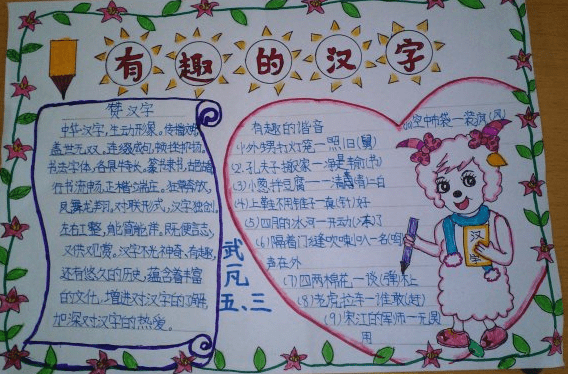 有趣的汉字
赞汉字
中华汉字,生动形象。传播文明,
盖世无双。连缀成句,顿挫抑扬。
书法字体,各具特长。篆隶
行书流畅,正楷端庄。狂草奔放,
凤舞龙翔。对联形式,汉字独创。
左右工整,能简能祥。既便言志,
又供观赏。汉字不光神奇、有趣,
还有悠久的历史,蕴含着丰富
的文化,增进对汉字的
加深对汉字的热爱。
武一凡
五、三
有趣的谐音
(1)外甥打灯笼一照旧(舅)
(2)孔夫子搬家一净是输(书)
(3)小葱拌豆腐一一清青二白
(4)上鞋不用锥子一真(针)好
(5)四月的冰河一开动(冻)了
(6)隔着门缝吹喇叭一名(鸣)
声在外
(7)四两棉花一谈(弹)不上
(8)老虎拉车一谁敢(赶)
(9)宋江的军师一无(吴)
用
(10)空中布袋一装疯(风)
汉
字